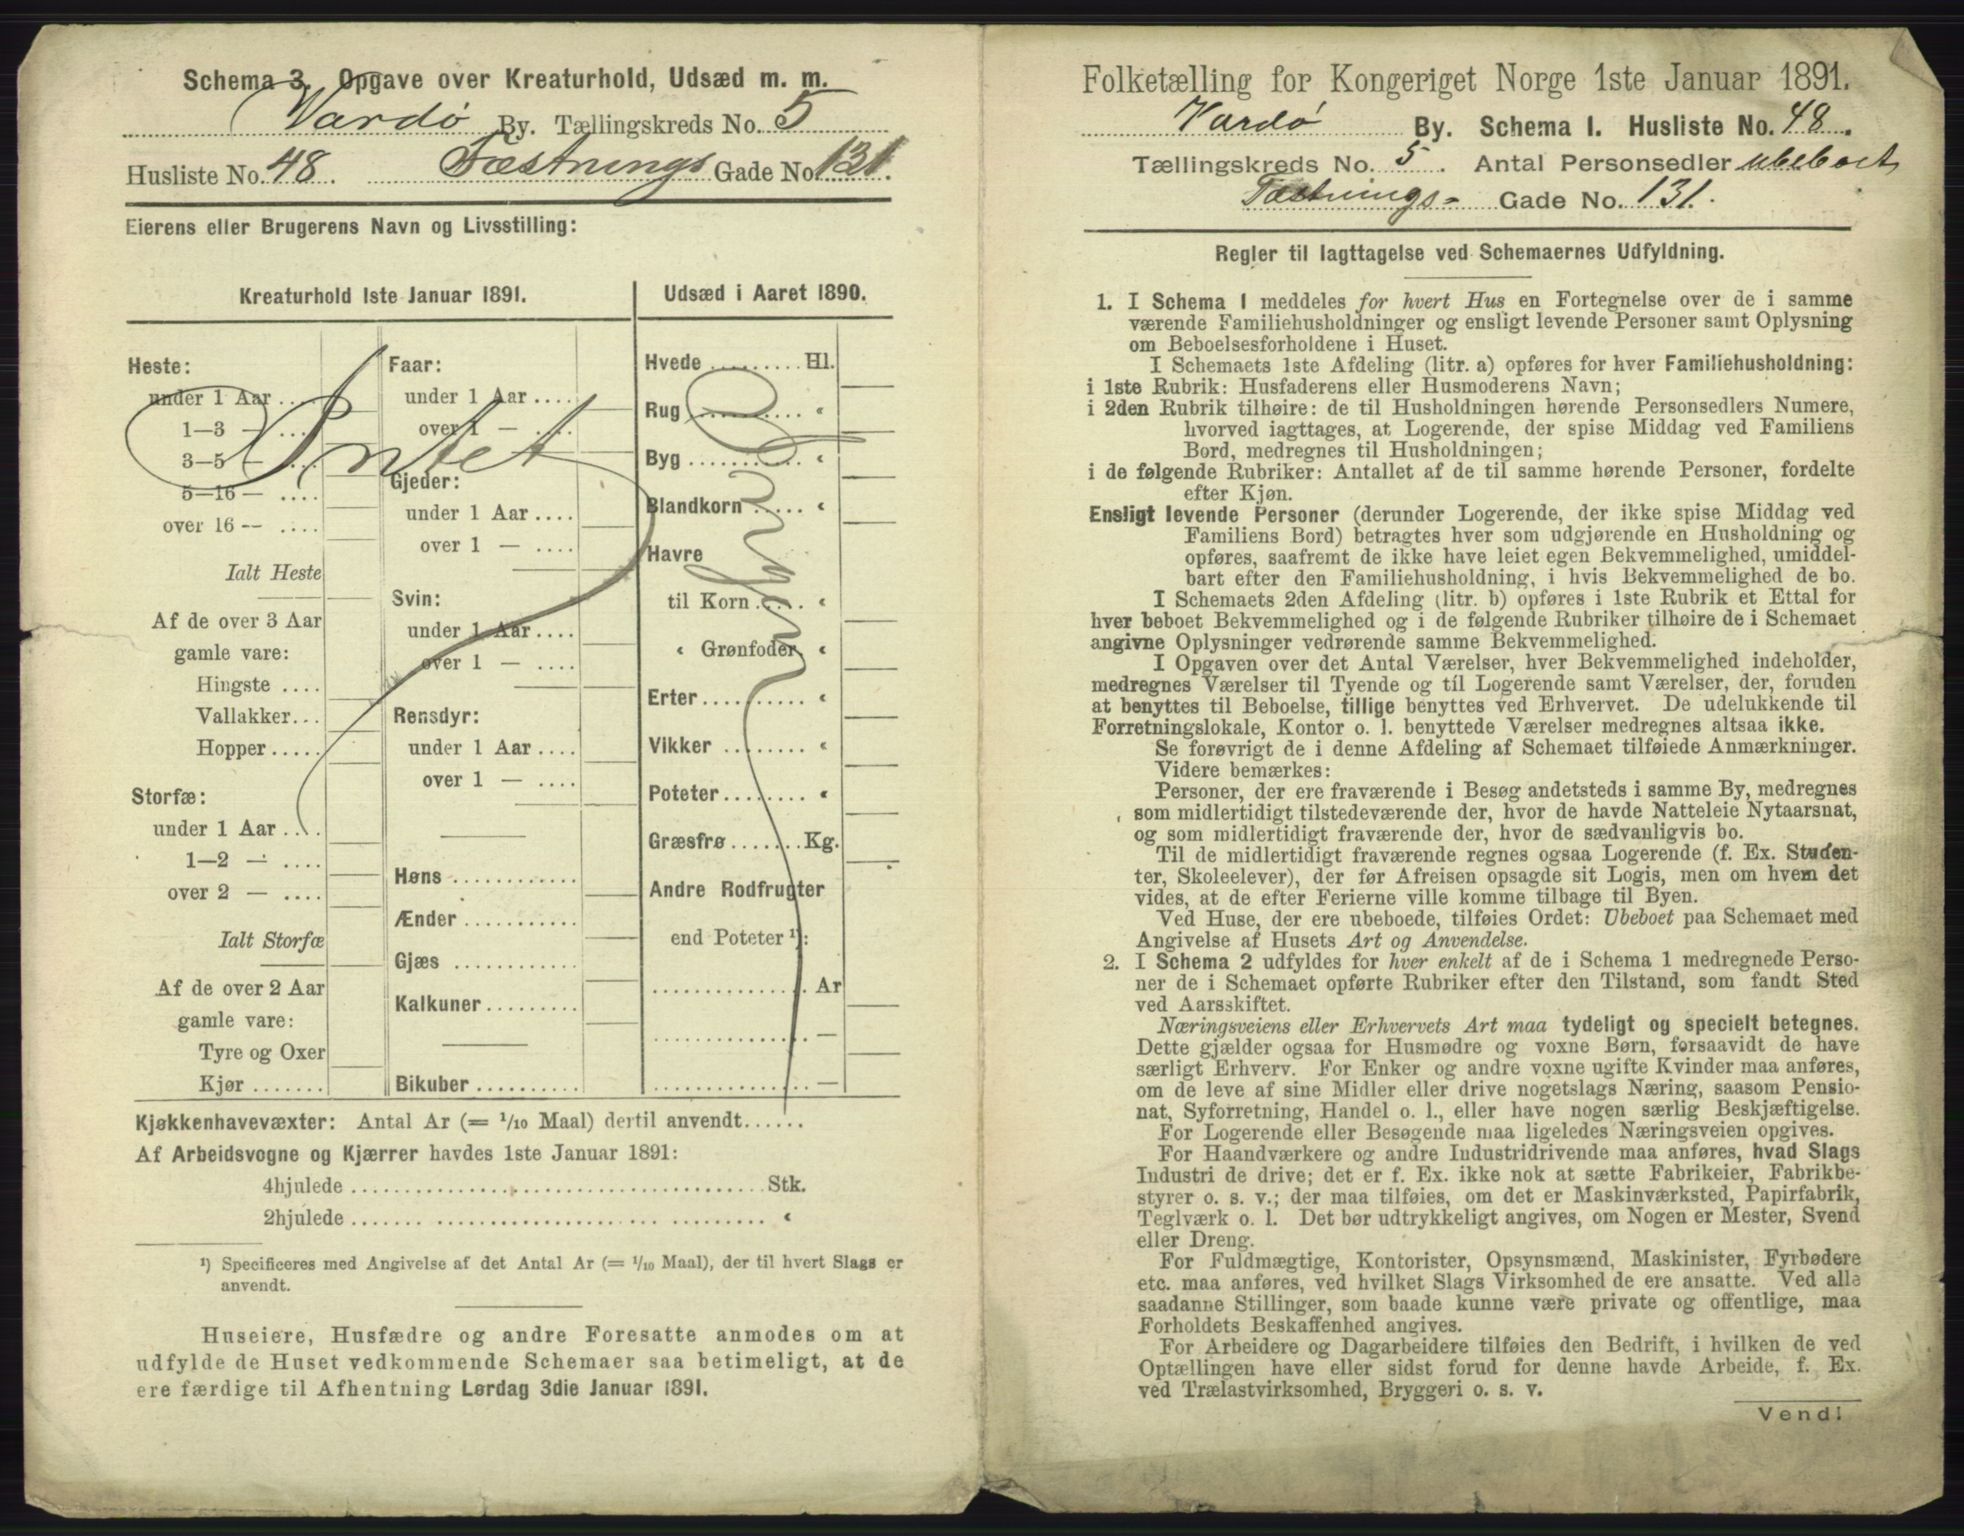 Schema 3. Opgave over Kreaturhold, Udsæd m. m.
Vardø By. Tællingskreds No. 5
Husliste No. 48. Fæstnings Gade No. 131.
Eierens eller Brugerens Navn og Livsstilling:
Kreaturhold 1ste Januar 1891.
Heste:
under 1 Aar ....
1—3 — ....
3—5 — ....
5—16 — ....
over 16 — ....
Ialt Heste
Af de over 3 Aar
gamle vare:
Hingste ....
Vallakker...
Hopper .....
Storfæ:
under 1 Aar ....
1—2 — ....
over 2 — ....
Ialt Storfæ
Af de over 2 Aar
gamle vare:
Tyre og Oxer
Kjør .......
Intet
Faar:
under 1 Aar ....
over 1 — ....
Gjeder:
under 1 Aar ....
over 1 — ....
Svin:
under 1 Aar ....
over 1 — ....
Rensdyr:
under 1 Aar ....
over 1 — ....
Høns ............
Ænder ...........
Gjæs ............
Kalkuner .........
Bikuber ..........
Udsæd i Aaret 1890.
Hvede .......... Hl.
Rug ........... «
Byg ............ «
Blandkorn ..... «
Havre
til Korn ..... «
« Grønfoder. «
Erter .......... «
Vikker ........ «
Poteter ........ «
Græsfrø ....... Kg.
Andre Rodfrugter
end Poteter ¹):
............... Ar
............... —
............... —
Kjøkkenhavevæxter: Antal Ar (= 1/10 Maal) dertil anvendt......
Af Arbeidsvogne og Kjærrer havdes 1ste Januar 1891:
4hjulede ........................................ Stk.
2hjulede ........................................ «
¹) Specificeres med Angivelse af det Antal Ar (= 1/10 Maal), der til hvert Slags er
anvendt.
Huseiere, Husfædre og andre Foresatte anmodes om at
udfylde de Huset vedkommende Schemaer saa betimeligt, at de
ere færdige til Afhentning Lørdag 3die Januar 1891.
Folketælling for Kongeriget Norge 1ste Januar 1891.
Vardø By. Schema 1. Husliste No. 48.
Tællingskreds No. 5. Antal Personsedler ubeboet
Fæstnings- Gade No. 131.
Regler til Iagttagelse ved Schemaernes Udfyldning.
1. I Schema 1 meddeles for hvert Hus en Fortegnelse over de i samme
værende Familiehusholdninger og ensligt levende Personer samt Oplysning
om Beboelsesforholdene i Huset.
I Schemaets 1ste Afdeling (litr. a) opføres for hver Familiehusholdning:
i 1ste Rubrik: Husfaderens eller Husmoderens Navn;
i 2den Rubrik tilhøire: de til Husholdningen hørende Personsedlers Numere,
hvorved iagttages, at Logerende, der spise Middag ved Familiens
Bord, medregnes til Husholdningen;
i de følgende Rubriker: Antallet af de til samme hørende Personer, fordelte
efter Kjøn.
Ensligt levende Personer (derunder Logerende, der ikke spise Middag ved
Familiens Bord) betragtes hver som udgjørende en Husholdning og
opføres, saafremt de ikke have leiet egen Bekvemmelighed, umiddel-
bart efter den Familiehusholdning, i hvis Bekvemmelighed de bo.
I Schemaets 2den Afdeling (litr. b) opføres i 1ste Rubrik et Ettal for
hver beboet Bekvemmelighed og i de følgende Rubriker tilhøire de i Schemaet
angivne Oplysninger vedrørende samme Bekvemmelighed.
I Opgaven over det Antal Værelser, hver Bekvemmelighed indeholder,
medregnes Værelser til Tyende og til Logerende samt Værelser, der, foruden
at benyttes til Beboelse, tillige benyttes ved Erhvervet. De udelukkende til
Forretningslokale, Kontor o. l. benyttede Værelser medregnes altsaa ikke.
Se forøvrigt de i denne Afdeling af Schemaet tilføiede Anmærkninger.
Videre bemærkes:
Personer, der ere fraværende i Besøg andetsteds i samme By, medregnes
som midlertidigt tilstedeværende der, hvor de havde Natteleie Nytaarsnat,
og som midlertidigt fraværende der, hvor de sædvanligvis bo.
Til de midlertidigt fraværende regnes ogsaa Logerende (f. Ex. Studen-
ter, Skoleelever), der før Afreisen opsagde sit Logis, men om hvem det
vides, at de efter Ferierne ville komme tilbage til Byen.
Ved Huse, der ere ubeboede, tilføies Ordet: Ubeboet paa Schemaet med
Angivelse af Husets Art og Anvendelse.
2. I Schema 2 udfyldes for hver enkelt af de i Schema 1 medregnede Perso-
ner de i Schemaet opførte Rubriker efter den Tilstand, som fandt Sted
ved Aarsskiftet.
Næringsveiens eller Erhvervets Art maa tydeligt og specielt betegnes.
Dette gjælder ogsaa for Husmødre og voxne Børn, forsaavidt de have
særligt Erhverv. For Enker og andre voxne ugifte Kvinder maa anføres,
om de leve af sine Midler eller drive nogetslags Næring, saasom Pensio-
nat, Syforretning, Handel o. l., eller have nogen særlig Beskjæftigelse.
For Logerende eller Besøgende maa ligeledes Næringsveien opgives.
For Haandværkere og andre Industridrivende maa anføres, hvad Slags
Industri de drive; det er f. Ex. ikke nok at sætte Fabrikeier, Fabrikbe-
styrer o. s. v.; der maa tilføies, om det er Maskinværksted, Papirfabrik,
Teglværk o. l. Det bør udtrykkeligt angives, om Nogen er Mester, Svend
eller Dreng.
For Fuldmægtige, Kontorister, Opsynsmænd, Maskinister, Fyrbødere
etc. maa anføres, ved hvilket Slags Virksomhed de ere ansatte. Ved alle
saadanne Stillinger, som baade kunne være private og offentlige, maa
Forholdets Beskaffenhed angives.
For Arbeidere og Dagarbeidere tilføies den Bedrift, i hvilken de ved
Optællingen have eller sidst forud for denne havde Arbeide, f. Ex.
ved Trælastvirksomhed, Bryggeri o. s. v.
Vend!